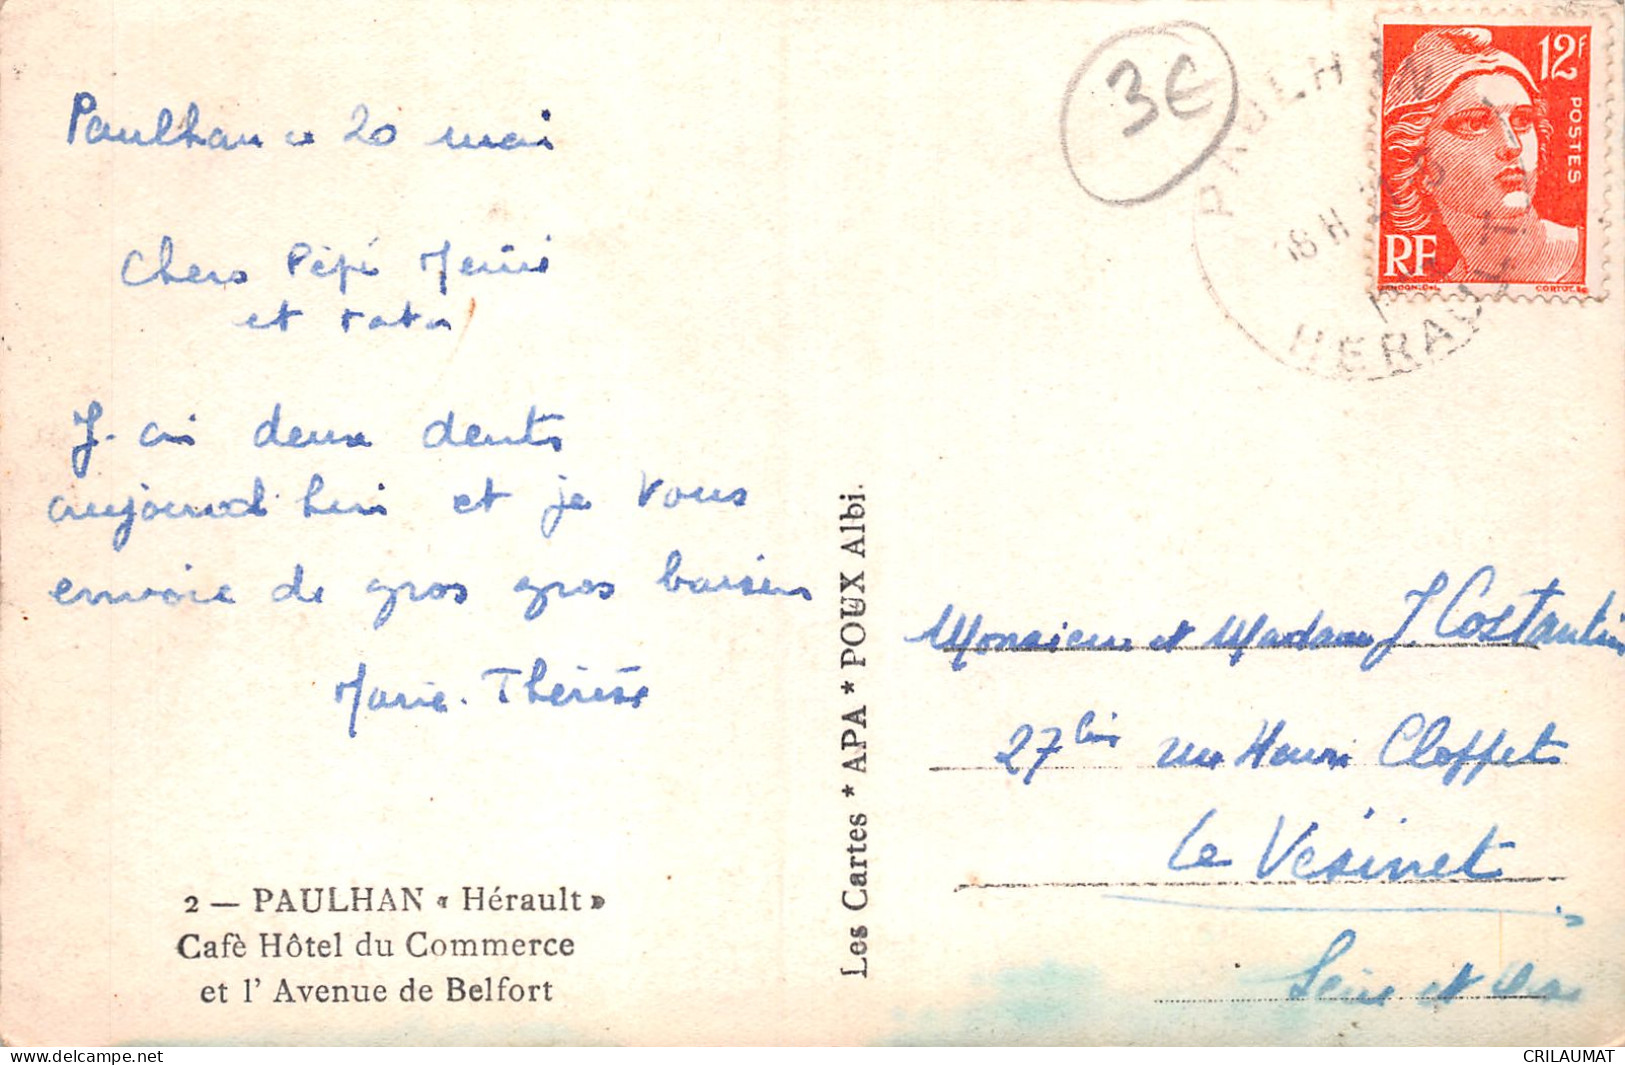 Paulhan ce 20 mai
Chers Pépé Mémé
et tata
J-ai deux dents
aujourd'hui et je vous
envoie de gros gros baisers
Marie-Thérèse
2 — PAULHAN « Hérault »
Cafè Hôtel du Commerce
et l' Avenue de Belfort
Les Cartes * APA * POUX Albi.
3€
PAULHAN
18 H
HERAULT
12f
POSTES
RF
GANDON.DEL.
CORTOT.SC
Monsieur et Madame J Costantin
27bis rue Henri Cloppet
Le Vésinet
Seine et Oise
www.delcampe.net
CRILAUMAT